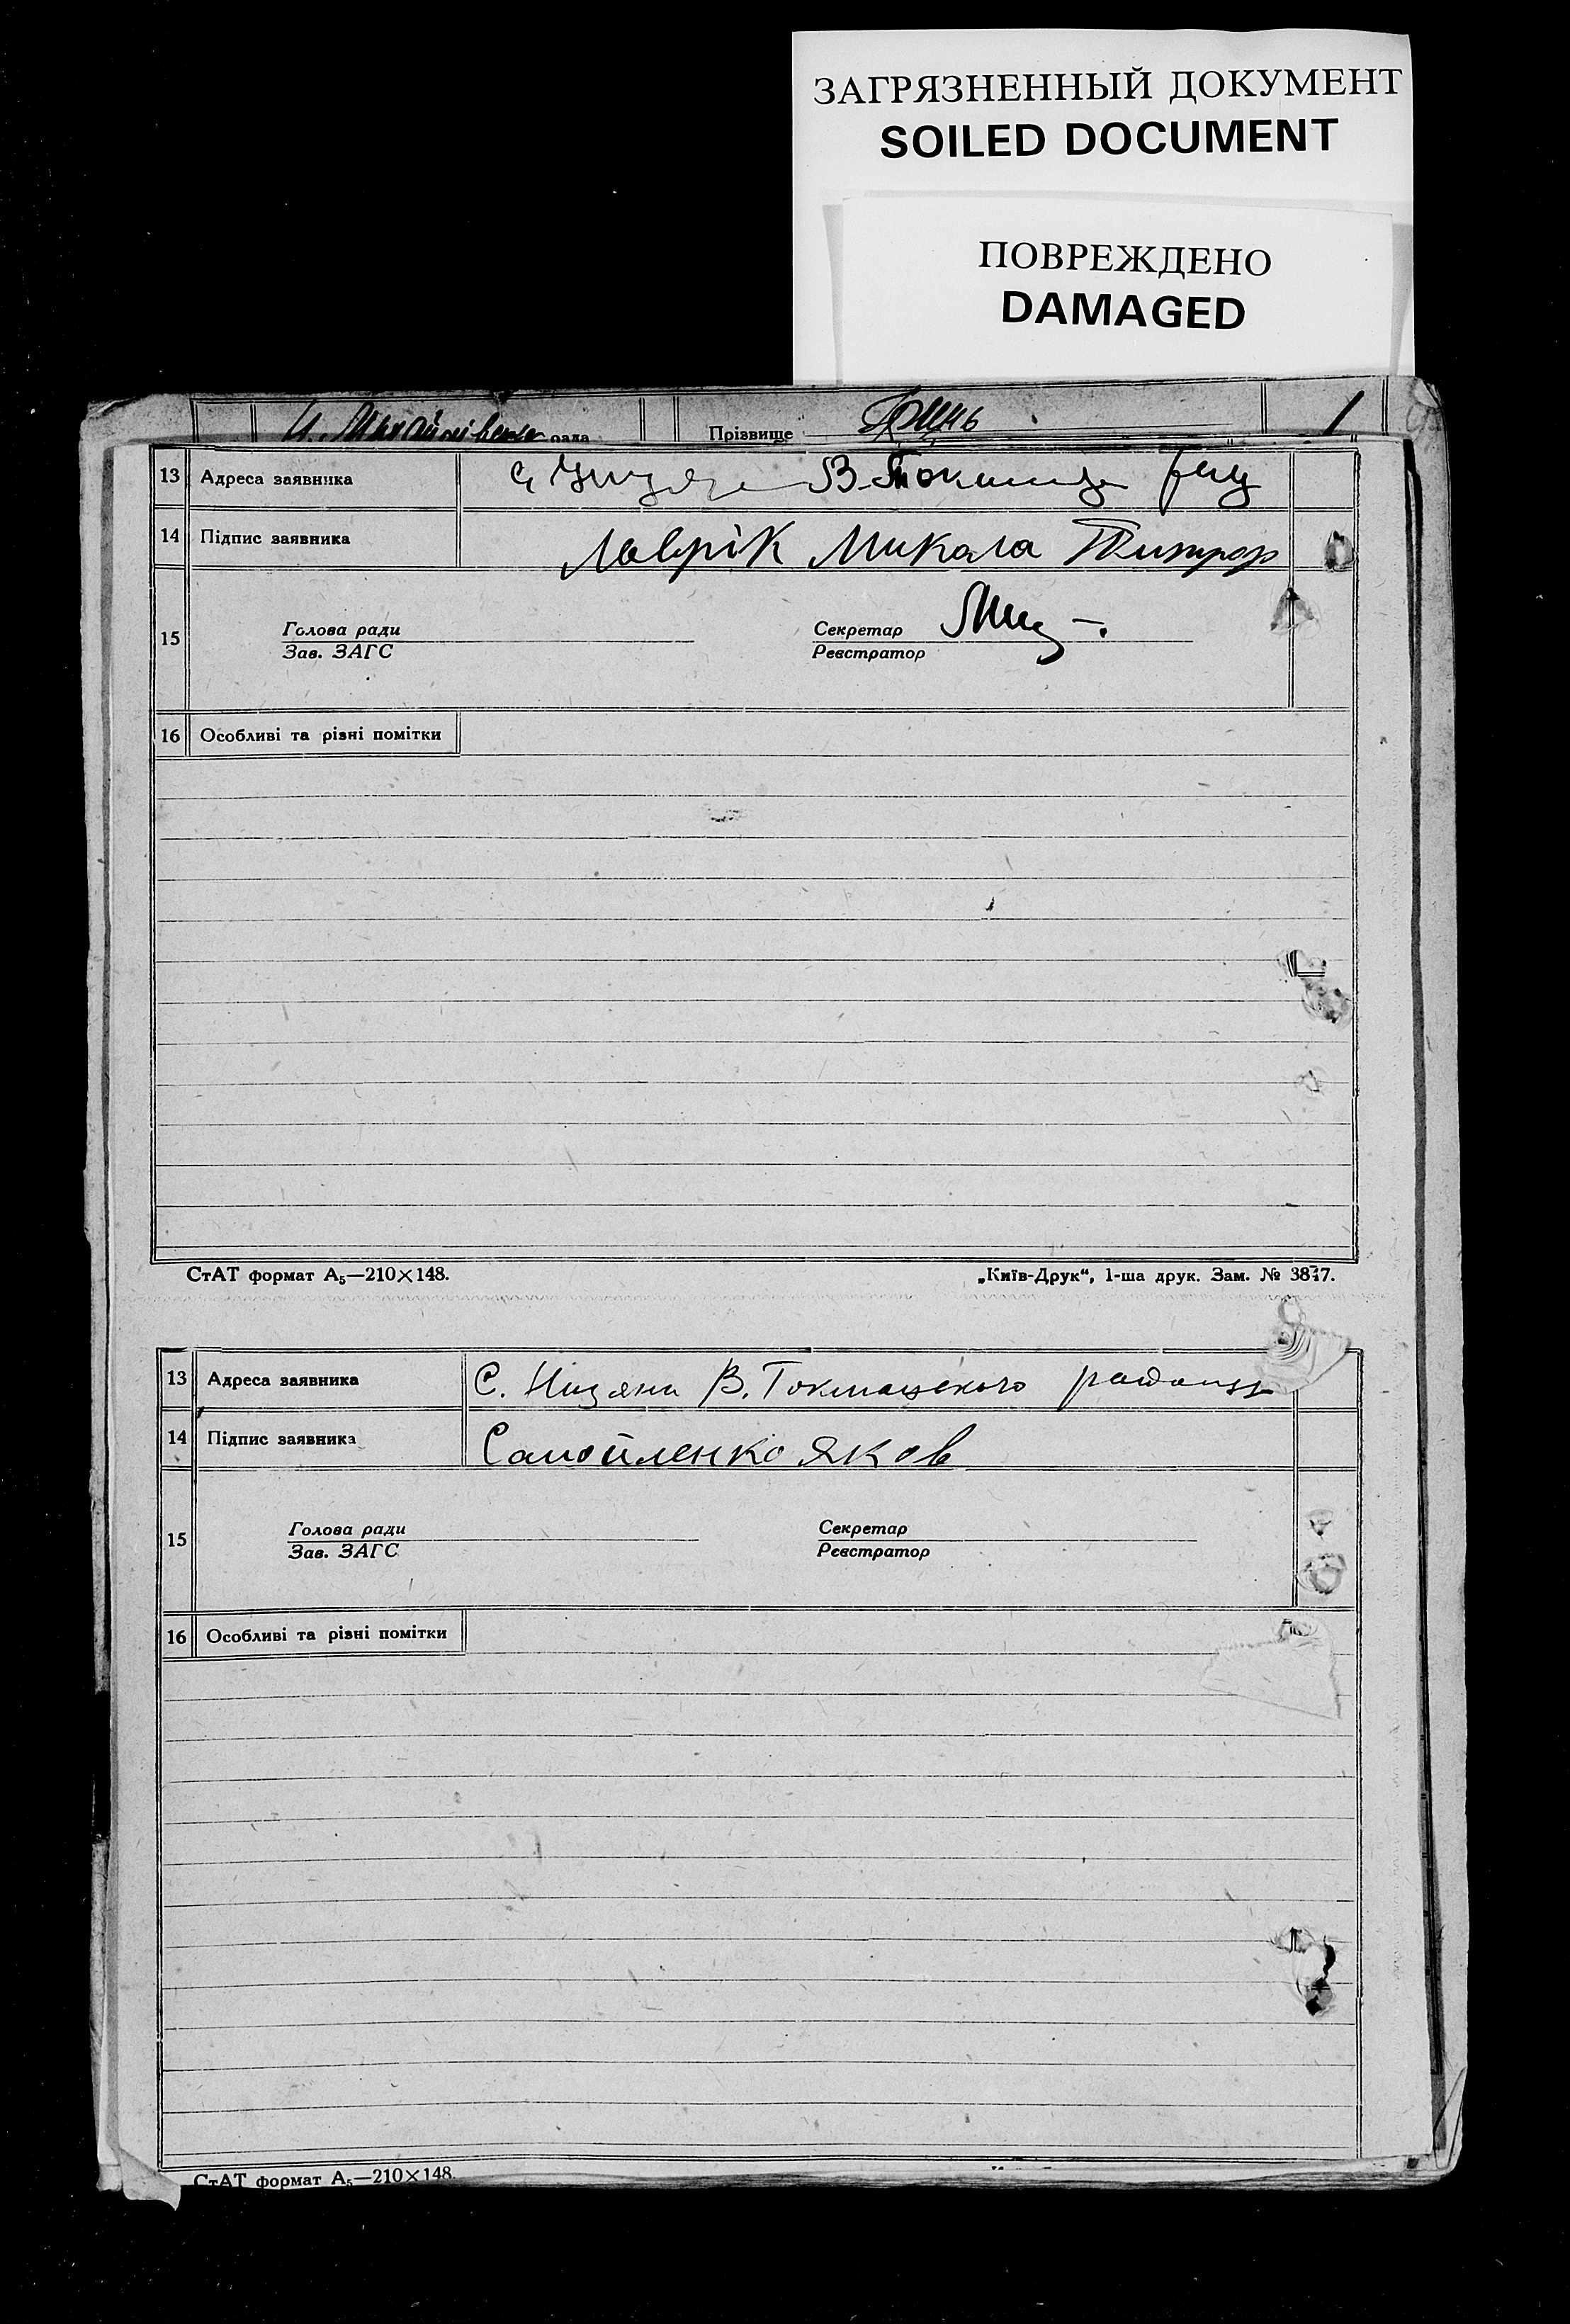 ЗАГРЯЗНЕННЫЙ ДОКУМЕНТ
SOILED DOCUMENT
ПОВРЕЖДЕНО
DAMAGED
Прізвище
13 Адреса заявника В-Токмац
14 Підпис заявника Лаврік Микола
15 Голова ради Секретар
Зав. ЗАГС Реєстратор
16 Особливі та різні помітки
СтАТ формат А5—210×148. „Київ-Друк“, 1-ша друк. Зам. № 3847.
13 Адреса заявника С. Ніцяни В. Токмацького району
14 Підпис заявника Самойленко Яков
15 Голова ради Секретар
Зав. ЗАГС Реєстратор
16 Особливі та різні помітки
СтАТ формат А5—210×148.